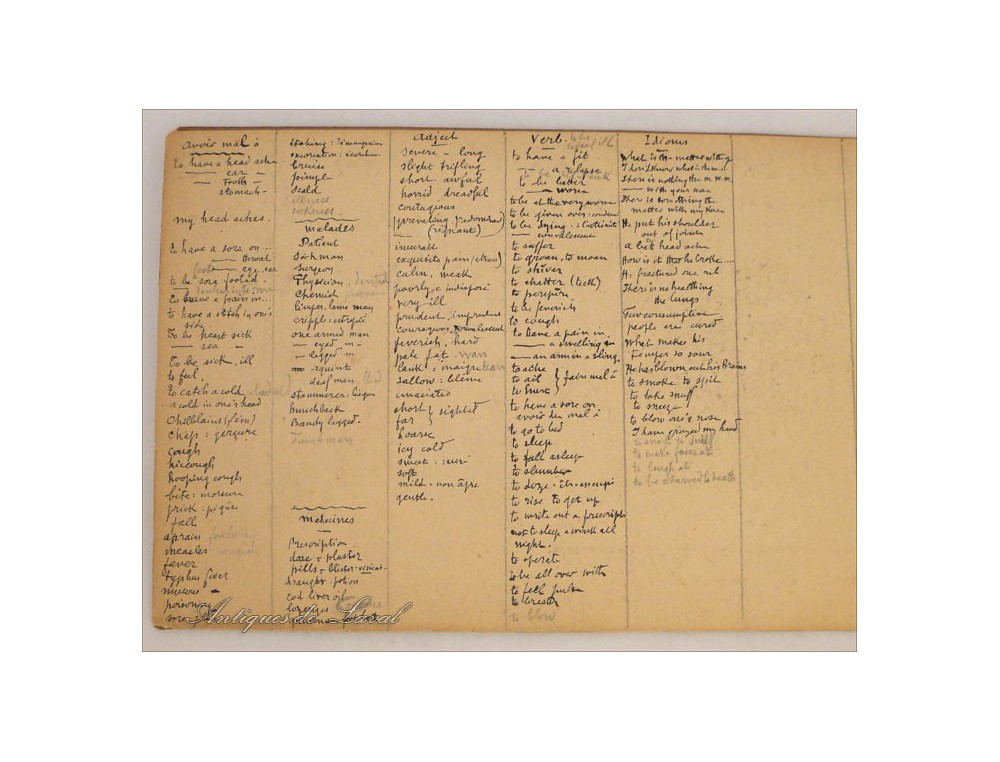 avoir mal à
to have a head ache
— ear —
— tooth —
stomach -
my head aches.
to have a sore on...
— throat
foot — eye, ear
to be sore footed.
to have a pain in...
to have a stitch in one's
side
to be heart sick
— sea —
to be sick, ill
to feel
to catch a cold
a cold in one's head
Chilblains (fém)
Chap : gerçure
cough
hiccough
hooping cough
bite : morsure
prick : piqûre
fall
sprain
measles
fever
typhus fever
mucous -
poisoning
itching : démangeaison
excoriation : écorchure
bruise
pimple
scald
illness
sickness
Malades
Patient
Sick man
Surgeon
Physician, dentist
Chemist
limper, lame man
cripple : estropié
one armed man
— eyed m -
— legged m
squint
deaf man
stammerer : bègue
hunchback
Bandy legged.
Dumb man
Medecines
Prescription
dose - plaster
pills - blister : vésicat.
draught : potion
cod liver oil
lozenges
Adject
severe - long
slight trifling
short awful
horrid dreadful
contagious
prevailing, predominant
(régnant)
incurable
exquisite pain (atroce)
calm, weak
poorly, indisposé
very ill
prudent, imprudent
courageous, somnolent
feverish, hard
pale fat, wan
lank : maigre lean
sallow : blême
short } sighted
far }
hoarse
icy cold
sweet : suri
soft
mild - non âpre
gentle.
Verb
to have a fit
— a relapse
to be better
— worse
to be at the very worse
to be given over : condamné
to be dying : à l'extrémité
— convalescent
to suffer
to groan, to moan
to shiver
to chatter (teeth)
to perspire
to be feverish
to cough
to have a pain in
— a swelling on
— an arm in a sling
to ache
to ail } faire mal à
to hurt
to have a sore on
avoir du mal à
to go to bed
to sleep
to fall asleep
to slumber
to doze - être assoupi
to rise to get up
to write out a prescript
not to sleep a wink all
night.
to operate
to be all over with
to feel pulse
to blow
Idioms
What is the matter with y
I don't know what is the m...
There is nothing the m. w. m.
— with your nose
There is something the
matter with my knee
He put his shoulder
out of joint
a bit head ache
How is it that he broke...
He fractured one rib
There is no healthing
the lungs
Few consumptive
people are cured
What makes his
temper so sour
He has blown out his Brains
to smoke to spit
to take snuff
to sneeze
to blow one's nose
I have grazed my hand
to make faces at
to laugh at
to be starved to death
Antiques de Laval